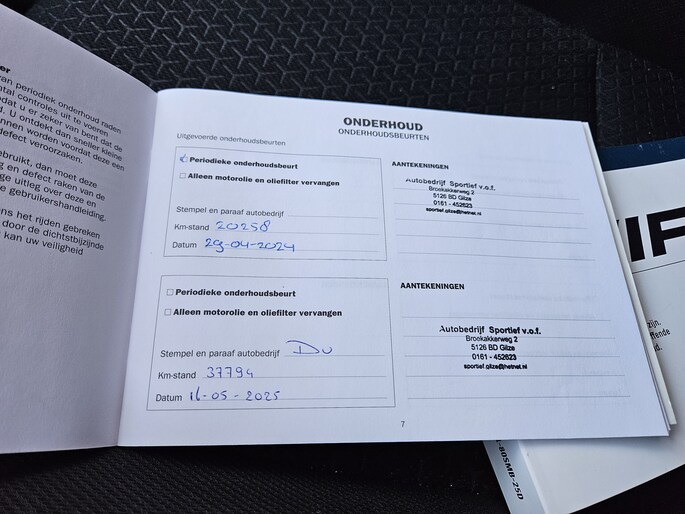 er
an periodiek onderhoud raden
otal controles uit te voeren
dat u er zeker van bent dat de
d. U ontdekt dan sneller kleine
nnen worden voordat deze een
defect veroorzaken.
ebruikt, dan moet deze
g en defect raken van de
ge uitleg over deze en
e gebruikershandleiding,
ns het rijden gebreken
door de dichtstbijzijnde
kan uw veiligheid
ONDERHOUD
ONDERHOUDSBEURTEN
Uitgevoerde onderhoudsbeurten
Periodieke onderhoudsbeurt
Alleen motorolie en oliefilter vervangen
Stempel en paraaf autobedrijf
Km-stand 20258
Datum 29-04-2024
AANTEKENINGEN
Autobedrijf Sportief v.o.f.
Broekakkerweg 2
5126 BD Gilze
0161 - 452623
sportief.gilze@hetnet.nl
Periodieke onderhoudsbeurt
Alleen motorolie en oliefilter vervangen
Stempel en paraaf autobedrijf
Km-stand 37794
Datum 16-05-2025
AANTEKENINGEN
Autobedrijf Sportief v.o.f.
Broekakkerweg 2
5126 BD Gilze
0161 - 452623
sportief.gilze@hetnet.nl
7
zijn.
ffende
d.
-80SMB-25D